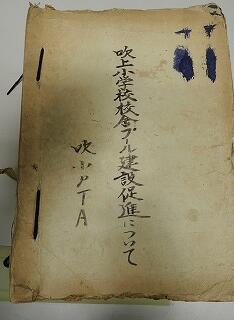 吹上小学校校舎プール建設促進について
吹小PTA